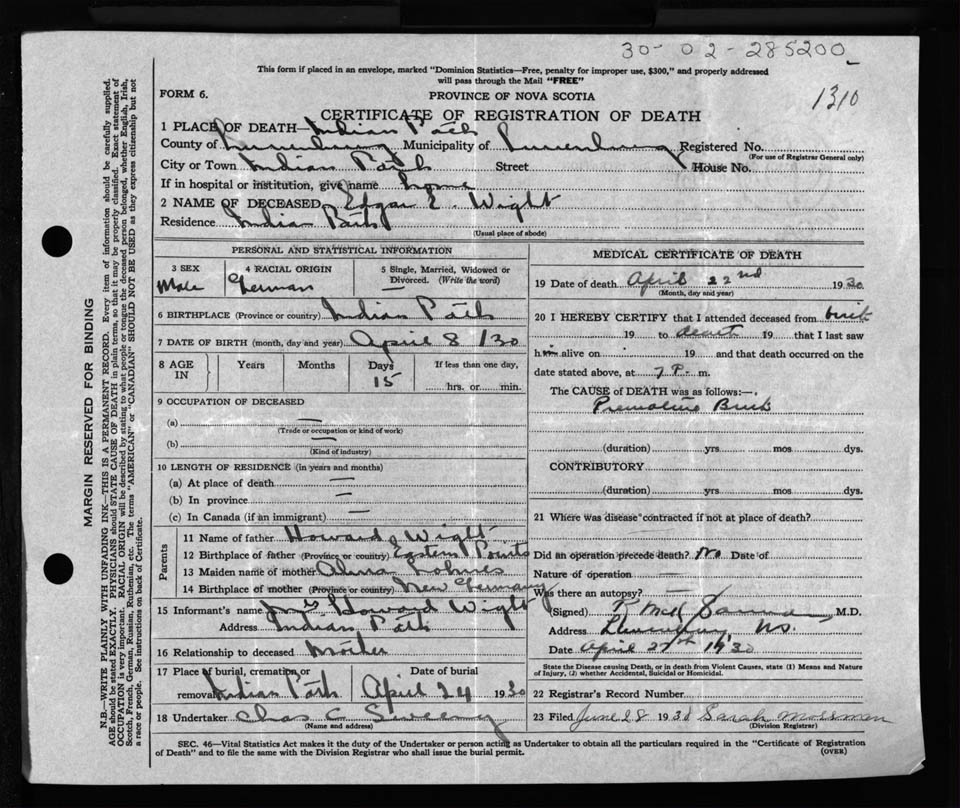 30-02-285200
This form if placed in an envelope, marked "Dominion Statistics—Free, penalty for improper use, $300," and properly addressed
will pass through the Mail "FREE"
FORM 6. PROVINCE OF NOVA SCOTIA
1310
CERTIFICATE OF REGISTRATION OF DEATH
1 PLACE OF DEATH— Indian Path
County of Lunenburg Municipality of Lunenburg Registered No.
(For use of Registrar General only)
City or Town Indian Path Street House No.
If in hospital or institution, give name home
2 NAME OF DECEASED Edgar E. Wight
Residence Indian Path
(Usual place of abode)
PERSONAL AND STATISTICAL INFORMATION
3 SEX 4 RACIAL ORIGIN 5 Single, Married, Widowed or
Divorced. (Write the word)
Male German —
6 BIRTHPLACE (Province or country) Indian Path
7 DATE OF BIRTH (month, day and year) April 8/30
8 AGE IN Years Months Days If less than one day,
15 hrs. or min.
9 OCCUPATION OF DECEASED
(a) —
(Trade or occupation or kind of work)
(b) —
(Kind of industry)
10 LENGTH OF RESIDENCE (in years and months)
(a) At place of death —
(b) In province —
(c) In Canada (if an immigrant) —
Parents
11 Name of father Howard Wight
12 Birthplace of father (Province or country) Eastern Points
13 Maiden name of mother Alma Lohnes
14 Birthplace of mother (Province or country) New Germany
15 Informant's name Mrs Howard Wight
Address Indian Path
16 Relationship to deceased Mother
17 Place of burial, cremation or removal Indian Path Date of burial April 24 1930
18 Undertaker Chas C Sweeny
(Name and address)
MEDICAL CERTIFICATE OF DEATH
19 Date of death April 22nd 1930
(Month, day and year)
20 I HEREBY CERTIFY that I attended deceased from birth
19 to death 19 that I last saw
him alive on 19 and that death occurred on the
date stated above, at 7 P. m.
The CAUSE of DEATH was as follows:—
Premature Birth
(duration) yrs mos dys.
CONTRIBUTORY
(duration) yrs. mos. dys.
21 Where was disease contracted if not at place of death?
Did an operation precede death? No Date of
Nature of operation —
Was there an autopsy? —
(Signed) M.D.
Address N.S.
Date April 27th 1930
State the Disease causing Death, or in death from Violent Causes, state (1) Means and Nature
of Injury, (2) whether Accidental, Suicidal or Homicidal.
22 Registrar's Record Number
23 Filed June 28 193 Sarah Mossman
(Division Registrar)
SEC. 46—Vital Statistics Act makes it the duty of the Undertaker or person acting as Undertaker to obtain all the particulars required in the "Certificate of Registration
of Death" and to file the same with the Division Registrar who shall issue the burial permit. (OVER)
MARGIN RESERVED FOR BINDING
N.B.—WRITE PLAINLY WITH UNFADING INK—THIS IS A PERMANENT RECORD. Every item of information should be carefully supplied.
AGE should be stated EXACTLY. PHYSICIANS should STATE CAUSE OF DEATH in plain terms, so that it may be properly classified. Exact statement of
OCCUPATION is very important. RACIAL ORIGIN will be described by stating to what people or tongue the deceased person belonged, whether English, Irish,
Scotch, French, German, Russian, Ruthenian, etc. The terms "AMERICAN" or "CANADIAN" SHOULD NOT BE USED as they express citizenship but not
a race or people. See instructions on back of Certificate.